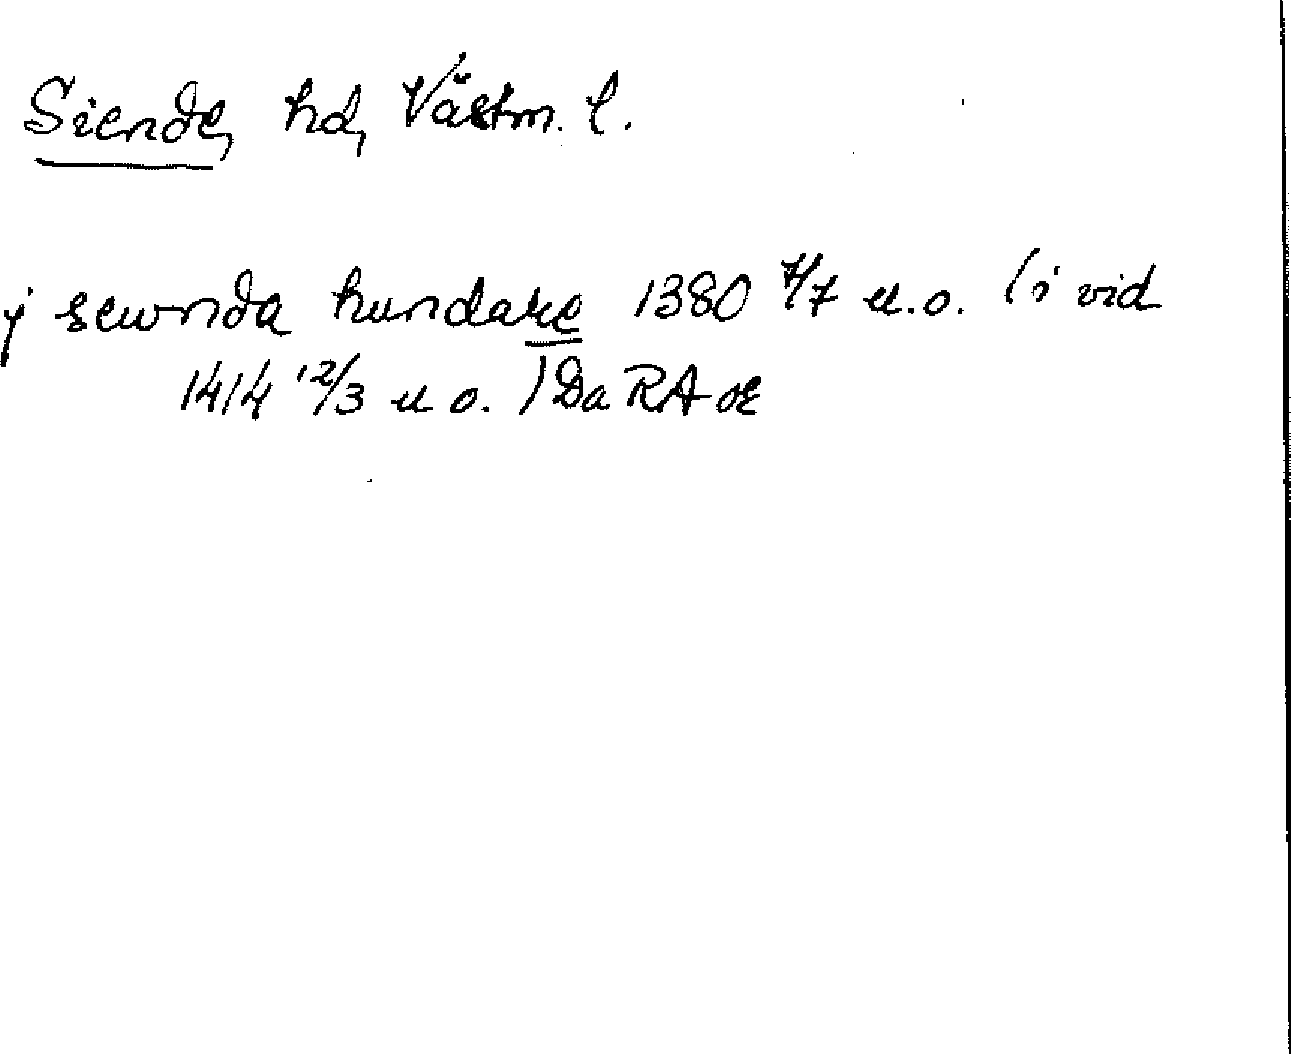 Siende, hd, Västm. l.
j sewnda hundare 1380 7/7 u.o. (i vid
1414 12/3 u o. ) Da RA or